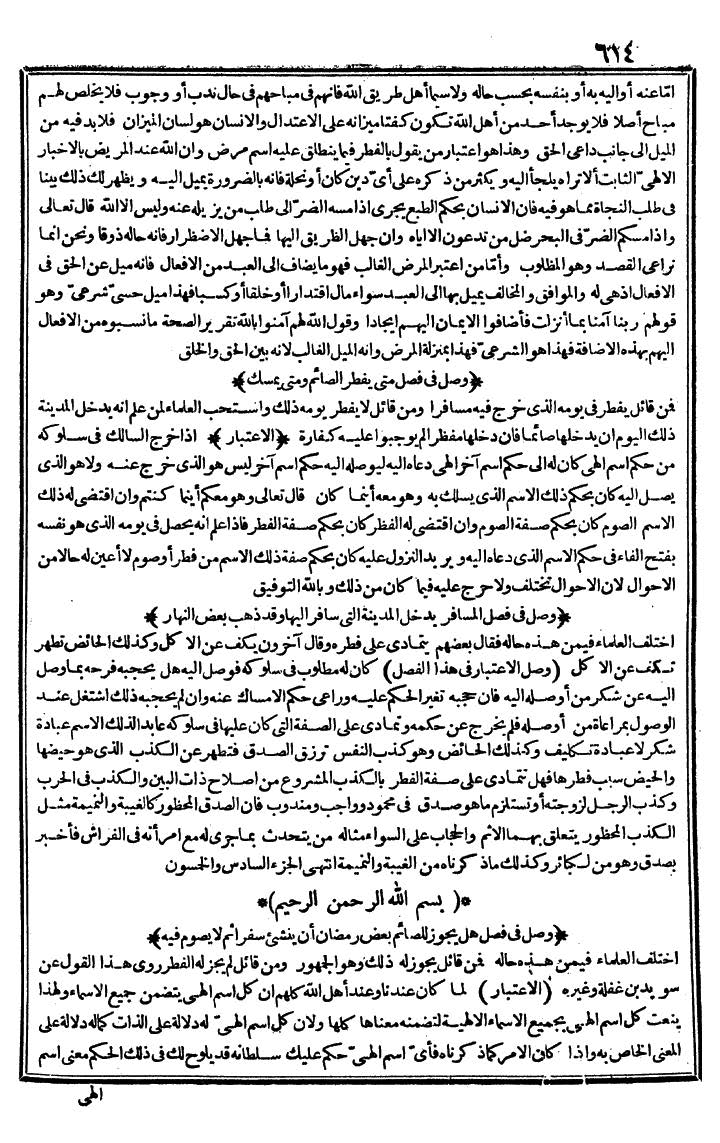 ٦١٤
امّا عنه أو اليه به أو بنفسه بحسب حاله ولا سيما أهل طريق الله فانهم فى مباحهم فى حال ندب أو وجوب فلا يخلص لهم
مباح أصلا فلا يوجد أحد من أهل الله تكون كفتا ميزانه على الاعتدال والانسان هو لسان الميزان فلا بد فيه من
الميل الى جانب داعى الحق وهذا هو اعتبار من يقول بالفطر فيما ينطلق عليه اسم مرض وان الله عند المريض بالاخبار
الالهىّ الثابت ألا تراه يلجأ اليه و يكثر من ذكره على أىّ دين كان أو نحلة فانه بالضرورة يميل اليه و يظهر لك ذلك بينا
فى طلب النجاة مما هو فيه فان الانسان بحكم الطبع يجرى اذا مسه الضرّ الى طلب من يزيله عنه وليس الا الله قال تعالى
واذا مسكم الضرّ فى البحر ضل من تدعون الا اياه وان جهل الطريق اليها فما جهل الاضطرار فانه حاله ذوقا ونحن انما
نراعى القصد وهو المطلوب وأمّا من اعتبر المرض الغالب فهو ما يضاف الى العبد من الافعال فانه ميل عن الحق فى
الافعال اذ هى له والموافق والمخالف يميل بها الى العبد سواء مال اقتدارا أو خلقا أو كسبا فهذا ميل حسىّ شرعىّ وهو
قولهم ربنا آمنا بما أنزلت فأضافوا الايمان اليهم ايجادا وقول الله لهم آمنوا بالله تقرير الصحة ما نسبوه من الافعال
اليهم بهذه الاضافة فهذا هو الشرعىّ فهذا بمنزلة المرض وانه الميل الغالب لانه بين الحق والخلق
﴿وصل فى فصل متى يفطر الصائم ومتى يمسك﴾
فمن قائل يفطر فى يومه الذى خرج فيه مسافرا ومن قائل لا يفطر يومه ذلك واستحب العلماء لمن علم انه يدخل المدينة
ذلك اليوم ان يدخلها صائما فان دخلها مفطرا لم يوجبوا عليه كفارة ﴿الاعتبار﴾ اذا خرج السالك فى سلوكه
من حكم اسم الهى كان له الى حكم اسم آخر الهى دعاه اليه ليوصله اليه حكم اسم آخر ليس هو الذى خرج عنه ولا هو الذى
يصل اليه كان بحكم ذلك الاسم الذى يسلك به وهو معه أينما كان قال تعالى وهو معكم أينما كنتم وان اقتضى له ذلك
الاسم الصوم كان بحكم صفة الصوم وان اقتضى له الفطر كان بحكم صفة الفطر فاذا علم انه يحصل فى يومه الذى هو نفسه
بفتح الفاء فى حكم الاسم الذى دعاه اليه و يريد النزول عليه كان بحكم صفة ذلك الاسم من فطر أو صوم لا أعين له حالا من
الاحوال لان الاحوال تختلف ولا حرج عليه فيما كان من ذلك و بالله التوفيق
﴿وصل فى فصل المسافر يدخل المدينة التى سافر اليها وقد ذهب بعض النهار﴾
اختلف العلماء فيمن هذه حاله فقال بعضهم يتمادى على فطره وقال آخرون يكف عن الاكل وكذلك الحائض تطهر
تكف عن الاكل (وصل الاعتبار فى هذا الفصل) كان له مطلوب فى سلوكه فوصل اليه هل يحجبه فرحه بما وصل
اليه عن شكر من أوصله اليه فان حجبه تغير الحكم عليه وراعى حكم الامساك عنه وان لم يحجبه ذلك اشتغل عند
الوصول بمراعاة من أوصله فلم يخرج عن حكمه وتمادى على الصفة التى كان عليها فى سلوكه عابدا لذلك الاسم عبادة
شكر لا عبادة تكليف وكذلك الحائض وهو كذب النفس ترزق الصدق فتطهر عن الكذب الذى هو حيضها
والحيض سبب فطرها فهل تتمادى على صفة الفطر بالكذب المشروع من اصلاح ذات البين والكذب فى الحرب
وكذب الرجل لزوجته أو تستلزم ما هو صدق فى محمود وواجب ومندوب فان الصدق المحظور كالغيبة والنميمة مثل
الكذب المحظور يتعلق بهما الاثم والحجاب على السواء مثاله من يتحدث بما جرى له مع امرأته فى الفراش فأخبر
بصدق وهو من الكبائر وكذلك ما ذكرناه من الغيبة والنميمة انتهى الجزء السادس والخمسون
*(بسم الله الرحمن الرحيم)*
﴿وصل فى فصل هل يجوز للصائم بعض رمضان أن ينشئ سفرا ثم لا يصوم فيه﴾
اختلف العلماء فيمن هذه حاله فمن قائل يجوز له ذلك وهو الجمهور ومن قائل لم يجز له الفطر روى هذا القول عن
سويد بن غفلة وغيره (الاعتبار) لما كان عندنا وعند أهل الله كلهم ان كل اسم الهى يتضمن جميع الاسماء ولهذا
ينعت كل اسم الهى بجميع الاسماء الالهية لتضمنه معناها كلها ولان كل اسم الهىّ له دلالة على الذات كما له دلالة على
المعنى الخاص به واذا كان الامر كما ذكرناه فأىّ اسم الهىّ حكم عليك سلطانه قد يلوح لك فى ذلك الحكم معنى اسم
الهى